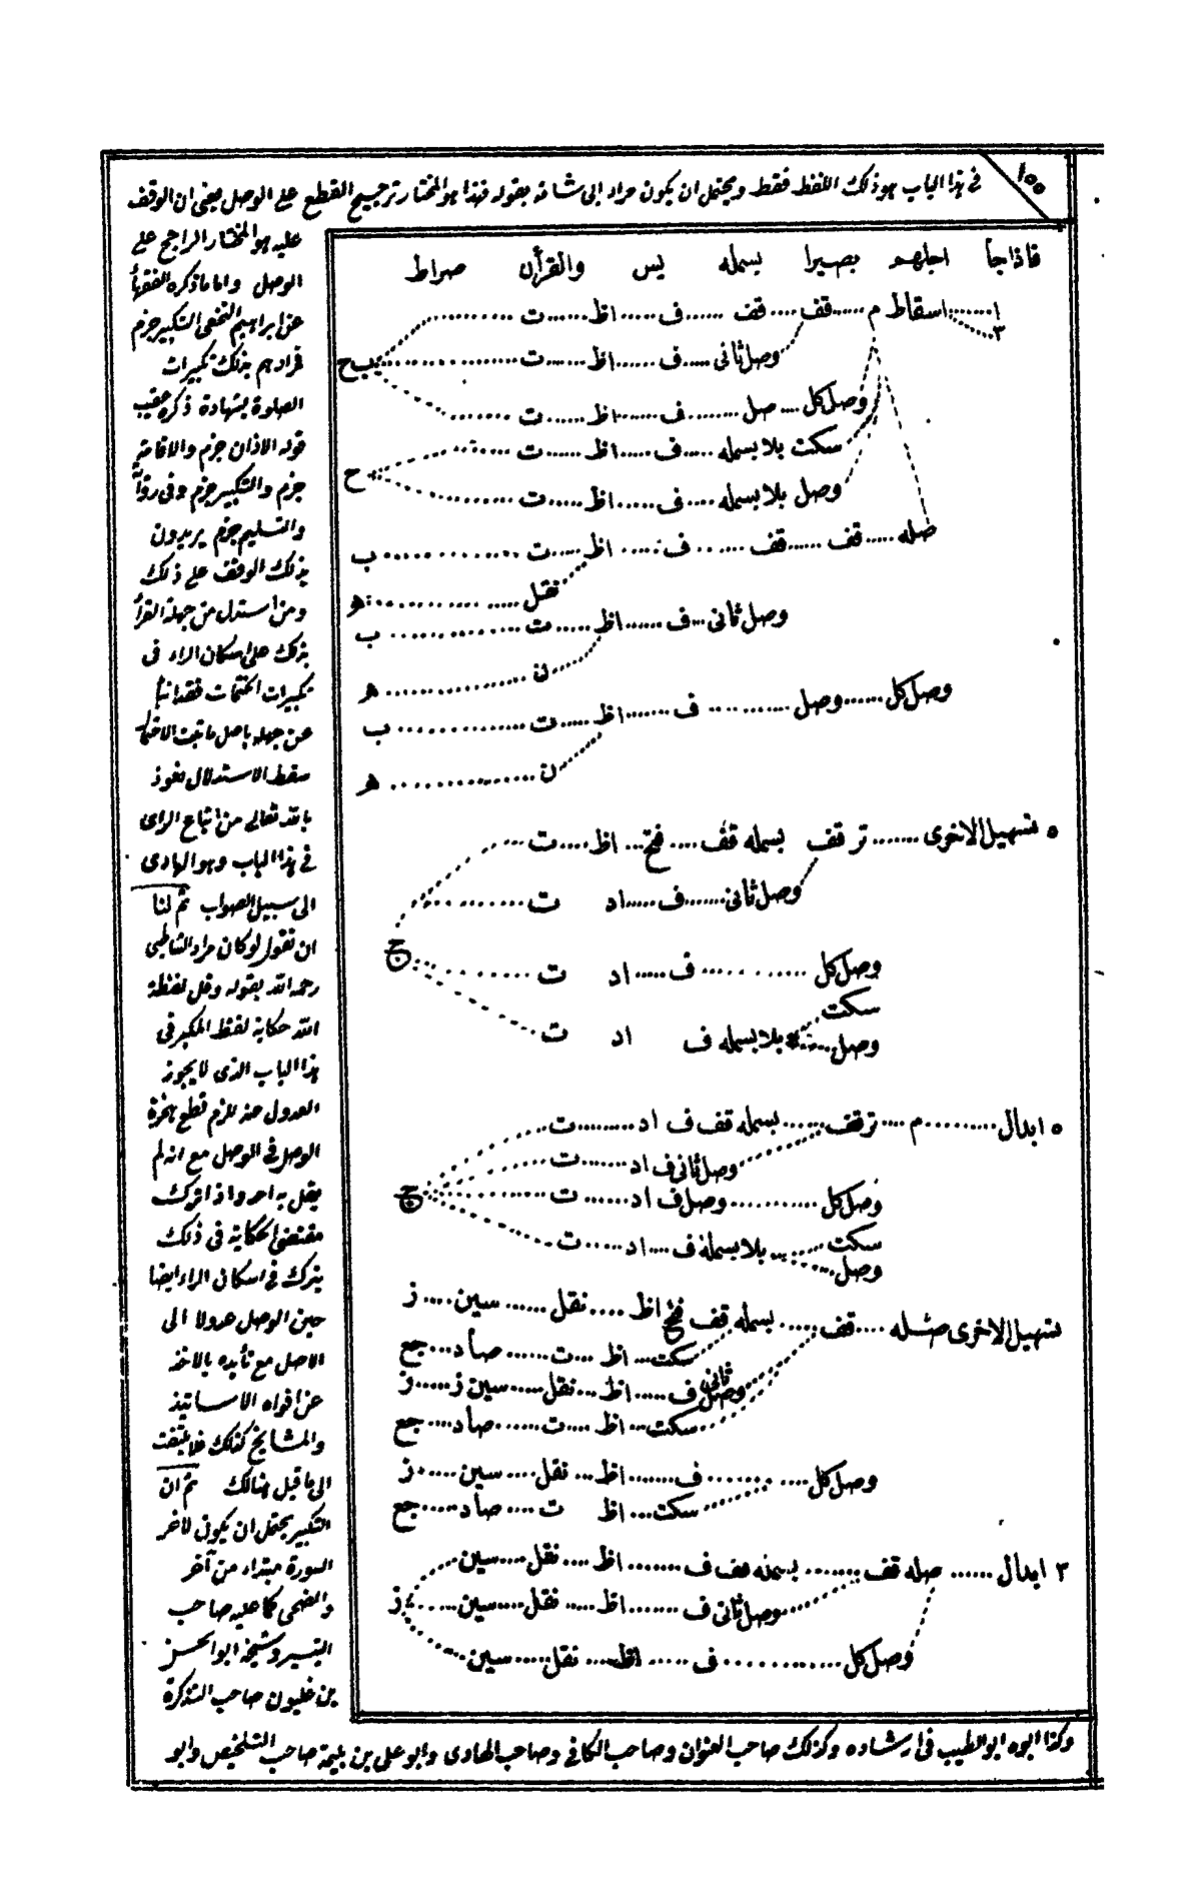 ١٠٥
فى هذا الباب هو ذلك اللفظ فقط ويحتمل ان يكون مراد ابى شامه بقوله فهذا هو المختار ترجيح القطع على الوصل يعنى ان الوقف
عليه هو المختار الراجح على
الوصل واما ما ذكره الفقهاء
عن ابراهيم النخعى التكبير جزم
فمرادهم بذلك تكبيرات
الصلوة بشهادة ذكره عقيب
قوله الاذان جزم والاقامة
جزم والتكبير جزم وفى رواية
والتسليم جزم يريدون
بذلك الوقف على ذلك
ومن استدل من جهلة القرأ
بذلك على اسكان الراء فى
تكبيرات الختمات فقد انبأ
عن جهله باصل ما ثبت
سقط الاستدلال نعوذ
بالله تعالى من اتباع الراى
فى هذا الباب وهو الهادى
الى سبيل الصواب ثم لنا
ان نقول لو كان مراد الشاطبى
رحمه الله بقوله وقل لفظة
الله حكاية لفظ المكبر فى
هذا الباب الذى لا يجوز
العدول عنه للزم قطع همزة
الوصل فى الوصل مع انه لم
يقل به احد واذا ترك
مقتضى الحكاية فى ذلك
يترك فى اسكان الراء ايضا
حين الوصل عدولا الى
الاصل مع تأيده بالاخذ
عن افواه الاساتيذ
والمشايخ كذلك فلا يلتفت
الى ما قيل هنالك ثم ان
التكبير يحتمل ان يكون لآخر
السورة مبتداء من آخر
والضحى كما عليه صاحب
التيسير وشيخه ابو الحسن
بن غلبون صاحب التذكرة
وكذا ابوه ابو الطيب فى ارشاده وكذلك صاحب العنوان وصاحب الكافى وصاحب الهادى وابو على بن بليمة صاحب التلخيص وابو
فاذا جأ اجلهم بصيرا بسمله يس والقرأن صراط
١ ٣ اسقاط م قف قف ف اظ ت
وصل ثانى ف اظ ت يب ح
وصل كل صل ف اظ ت
سكت بلا بسمله ف اظ ت
ح
وصل بلا بسمله ف اظ ت
صله قف قف ف اظ ت ب
نقل ه
وصل ثانى ف اظ ت ب
ن ه
وصل كل وصل ف اظ ت ب
ن ه
٥ تسهيل الاخرى تر قف بسمله قف فتح اظ ت
وصل ثانى ف اد ت
ج
وصل كل ف اد ت
سكت
وصل بلا بسمله ف اد ت
٥ ابدال م تر قف بسمله قف ف اد ت
وصل ثانى ف اد ت
وصل كل وصل ف اد ت ج
سكت بلا بسمله ف اد ت
وصل
تسهيل الاخرى صله قف بسمله قف فتح اظ نقل سين ز
سكت اظ ت صاد جع
وصل ثانى ف اظ نقل سين ز ز
سكت اظ ت صاد جع
وصل كل ف اظ نقل سين ز
سكت اظ ت صاد جع
٣ ابدال صله قف بسمله قف ف اظ نقل سين
وصل ثانى ف اظ نقل سين ز
وصل كل ف اظ نقل سين